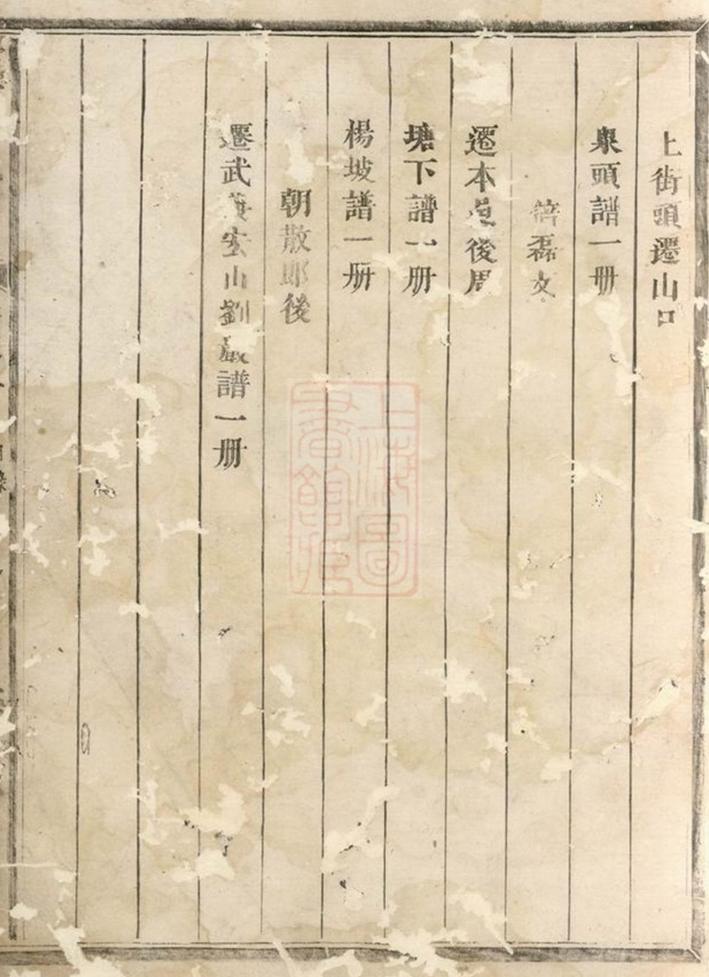 上街頭遷山口
泉頭譜一册
磊文
遷本邑後周
塘下譜一册
楊坡譜一册
朝散郎後
遷武義宏山劉嚴譜一册
上海圖書館藏